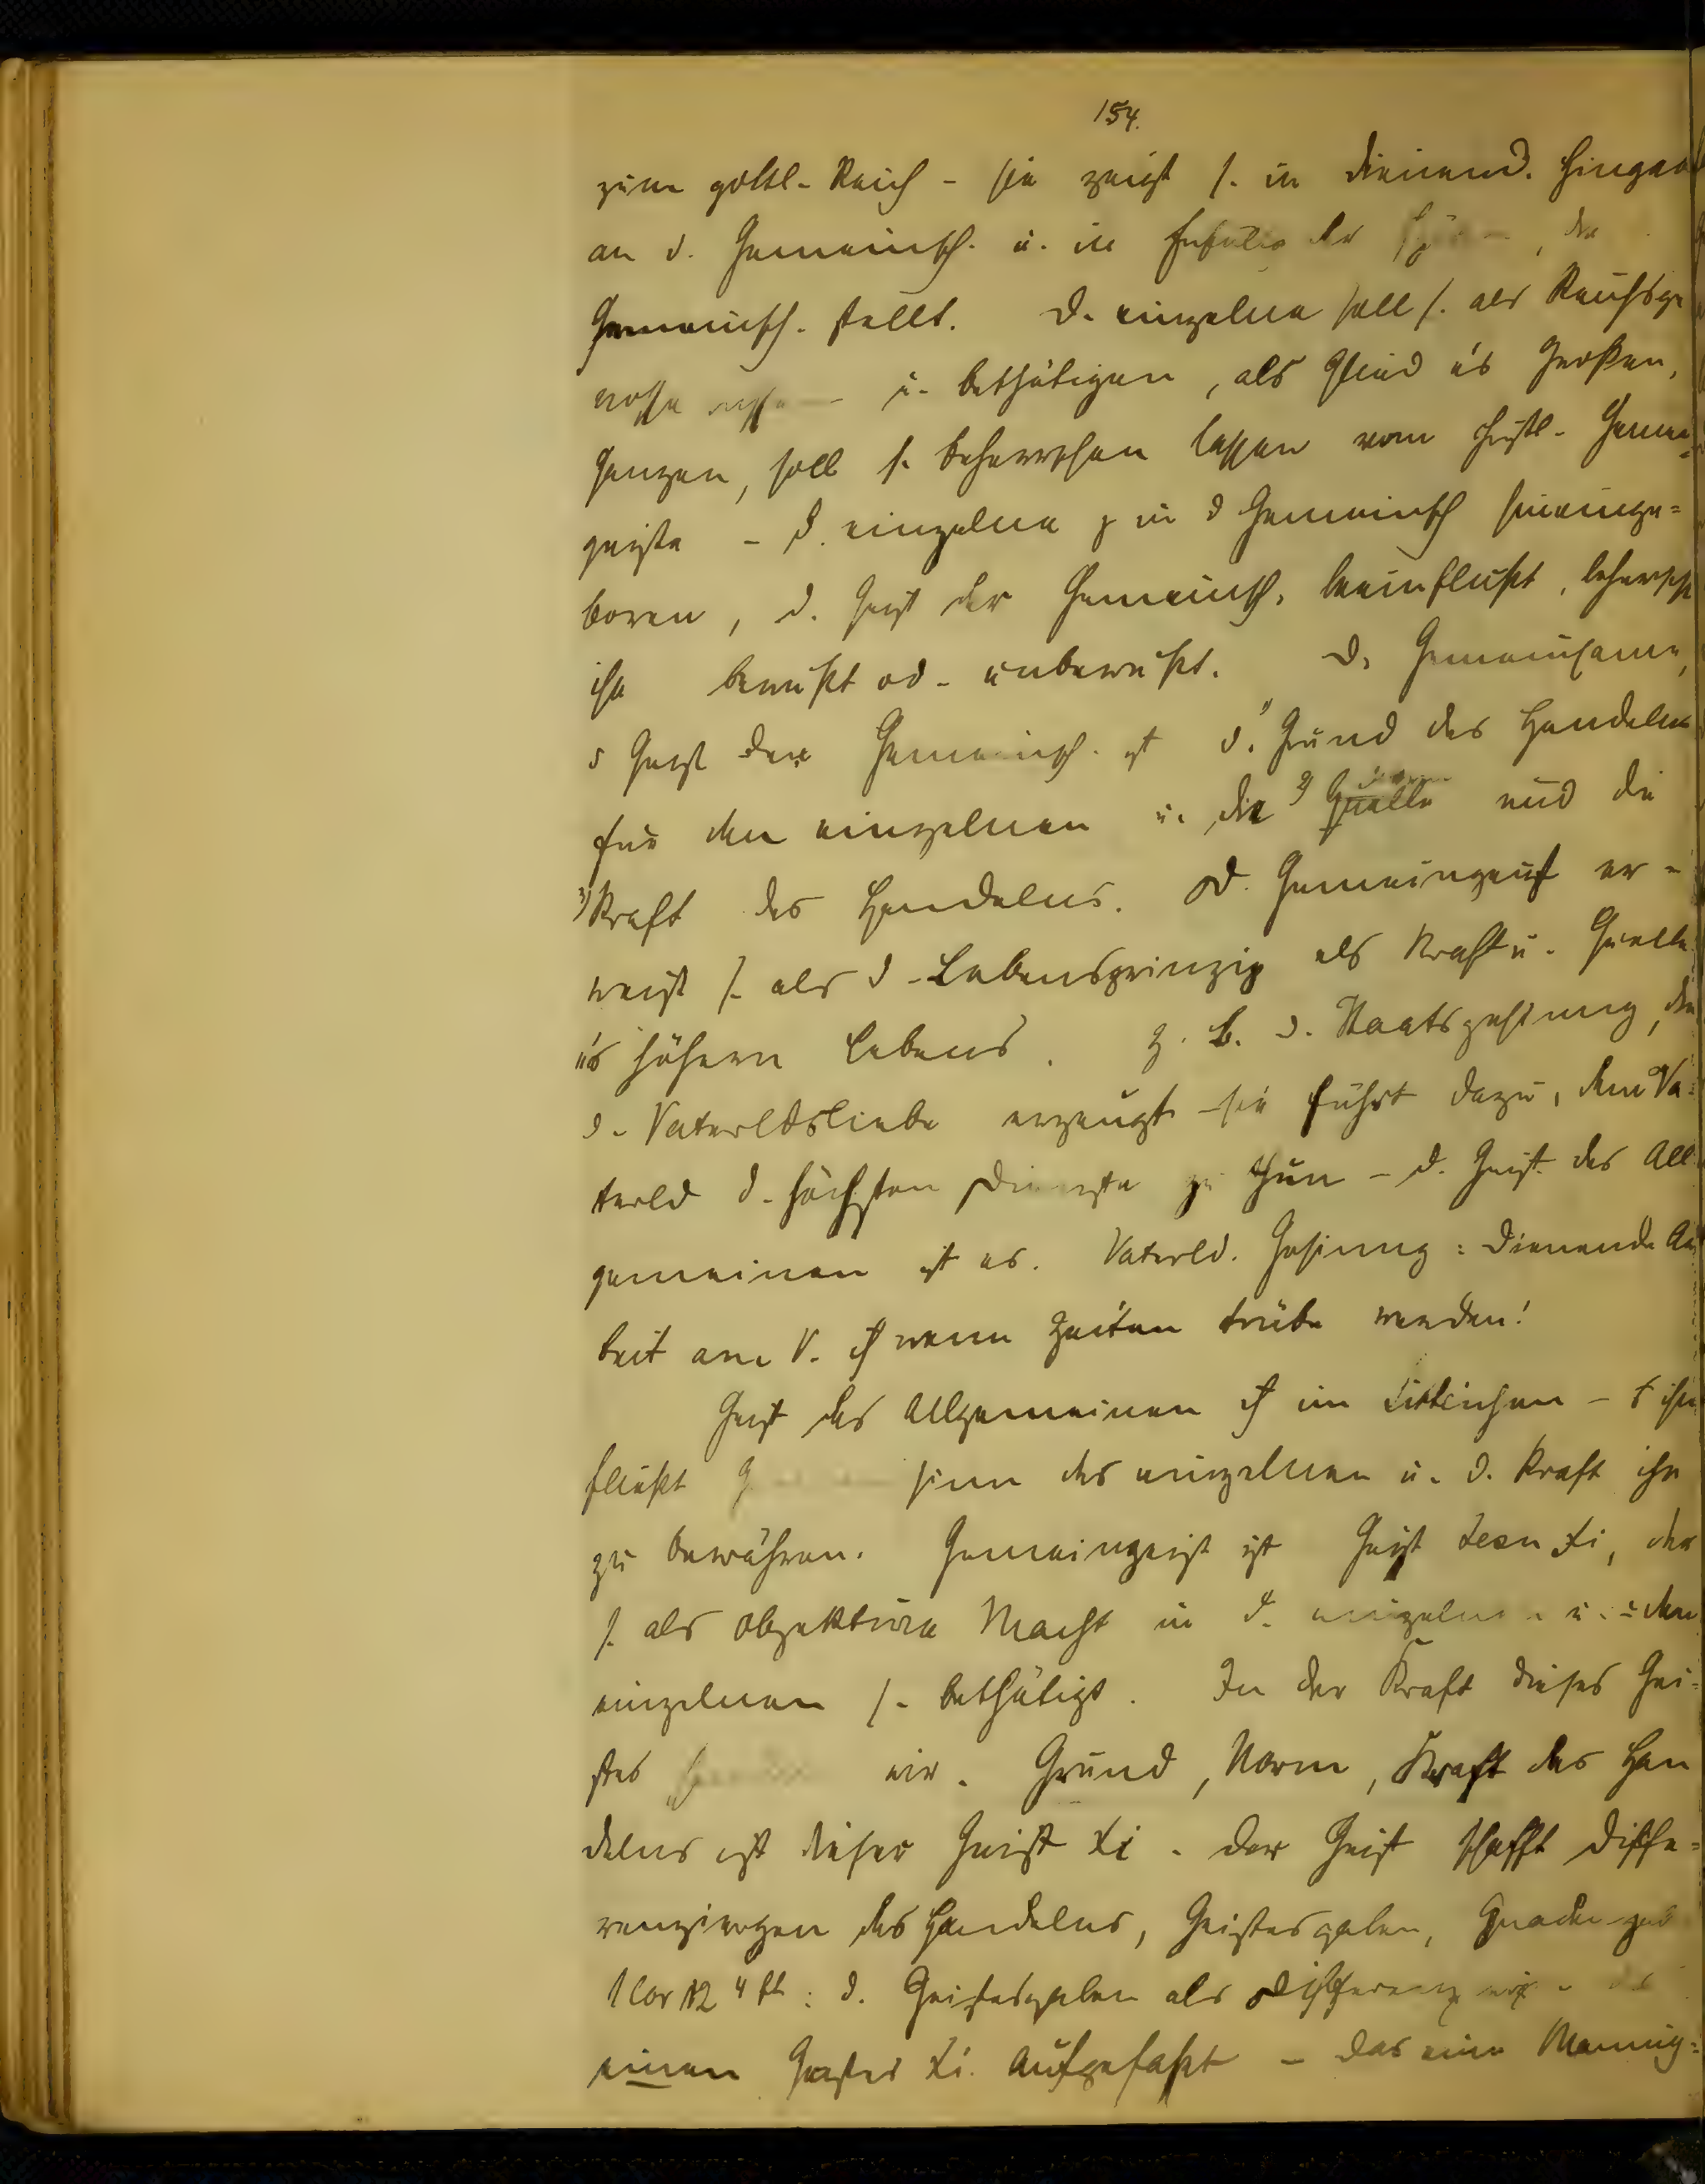 154.
zum göttl. Reich - sie zeigt s. in dienend. Hingab
an d. Gemeinsch. u. in der , die
Gemeinsch. stellt. D. einzelne soll s. als Reichsge
nosse u. bethätigen, als Glied e's Großen,
Ganzen, soll s. beherrschen lassen vom christl. Gemein=
geiste - D. einzelne in d Gemeinsch hineinge=
boren, d. Geist der Gemeinsch. beeinflußt, beherrscht
ihn bewußt od. unbewußt. D. Gemeinsame,
d Geist der Gemeinsch. ist d. 1) Grund des Handelns
für den einzelnen u. die 2) Quelle und die
3) Kraft des Handelns. D. Gemeingeist er=
weist s. als d. Lebensprinzip als Kraft u. Quelle
e's höhern Lebens. z. B. d. Staatsgesinnung, die
d. Vaterldsliebe erzeugt - sie führt dazu, dem Va=
terld d. höchsten Dienste zu thun - d. Geist des All
gemeinen ist es. Vaterld. Gesinnung: dienende Ar
beit am V. wenn Zeiten trübe werden!
Geist des Allgemeinen im Sittlichen - ihm
fließt sinn des einzelnen u. d. Kraft ihn
zu bewähren. Gemeingeist ist Geist Jesu Xi, der
s. als objektive Macht in d. einzelnen u. den
einzelnen s. bethätigt. In der Kraft dieses Gei=
stes wir. Grund, Norm, Kraft des Han
delns ist dieser Geist Xi. Der Geist schafft Diffe=
renzirgen des Handelns, Geistesgaben, Gnadengab
1 Cor 12 4 ff: d. Geistesgaben als
einen Geistes Xi. aufgefaßt - das eine Mannig=